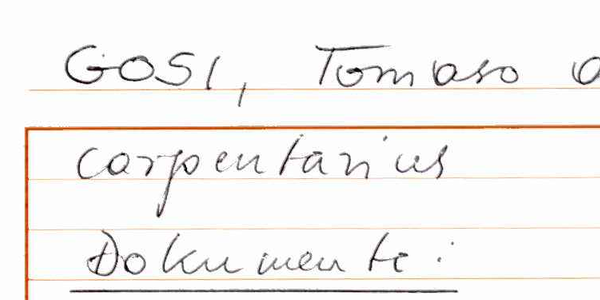 GOSI, Tomaso
carpentarius
Dokumente: